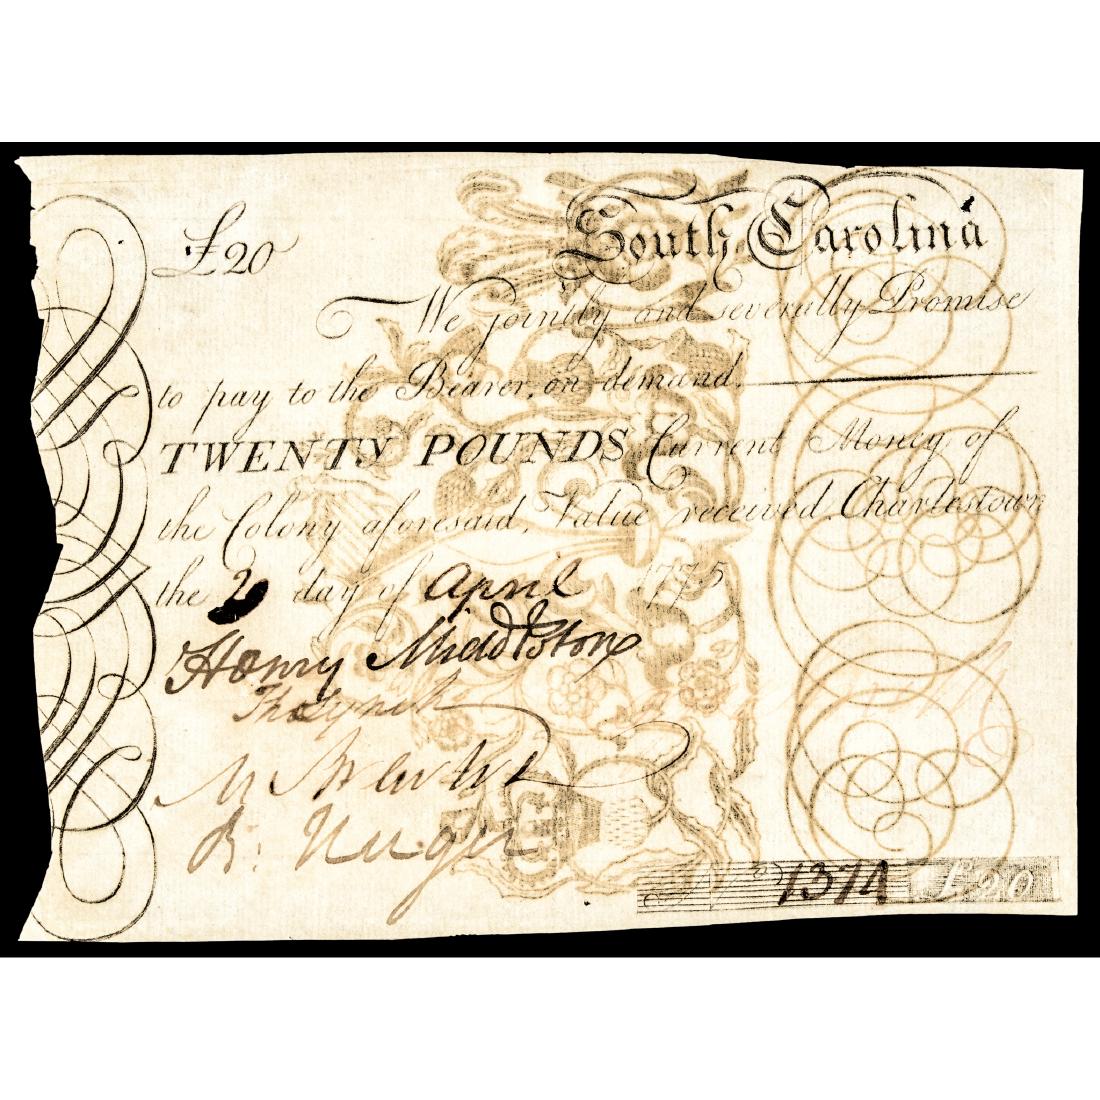 £20
South Carolina
We jointly and severally Promise
to pay to the Bearer, on demand
TWENTY POUNDS Current Money of
the Colony aforesaid, Value received. Charlestown
the 2 day of April 1775
Henry Middleton
Tho Lynch
B. Huger
No 1374 £20